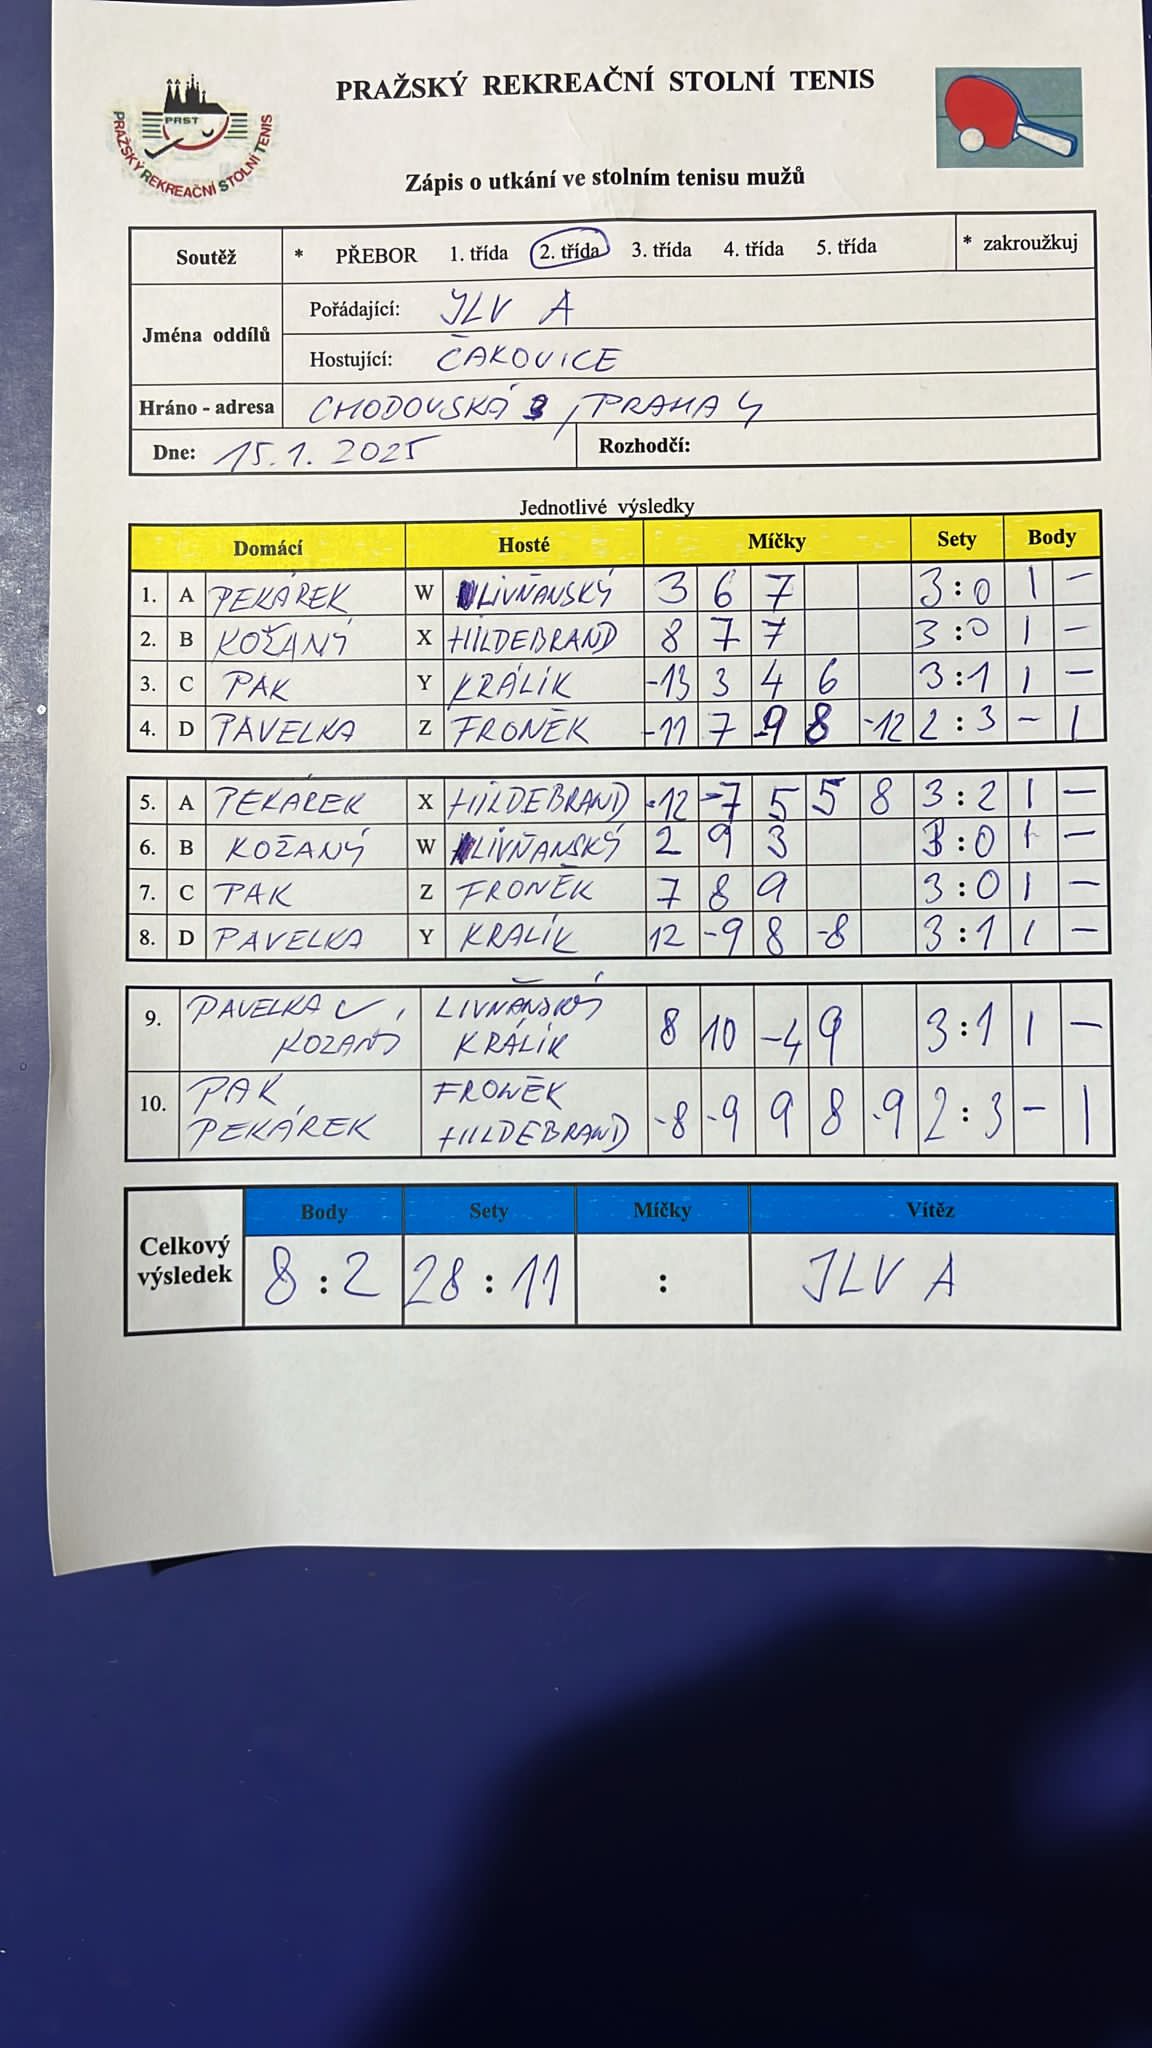 PRAŽSKÝ REKREAČNÍ STOLNÍ TENIS
PRST
PRAŽSKÝ REKREAČNÍ STOLNÍ TENIS
Zápis o utkání ve stolním tenisu mužů
Soutěž * PŘEBOR 1. třída 2. třída 3. třída 4. třída 5. třída * zakroužkuj
Jména oddílů
Pořádající: JLV A
Hostující: ČAKOVICE
Hráno - adresa CHODOVSKÁ 3, PRAHA 4
Dne: 15.1. 2025 Rozhodčí:
Jednotlivé výsledky
Domácí Hosté Míčky Sety Body
1. A PEKÁREK W LIVŇANSKÝ 3 6 7 3:0 1 –
2. B KOŽANÝ X HILDEBRAND 8 7 7 3:0 1 –
3. C PAK Y KRÁLÍK -13 3 4 6 3:1 1 –
4. D PAVELKA Z FRONĚK -11 7 -9 8 -12 2:3 – 1
5. A PEKAREK X HILDEBRAND -12 -7 5 5 8 3:2 1 –
6. B KOŽANÝ W LIVŇANSKÝ 2 9 3 3:0 1 –
7. C PAK Z FRONĚK 7 8 9 3:0 1 –
8. D PAVELKA Y KRALÍK 12 -9 8 -8 3:1 1 –
9. PAVELKA , LIVŇANSKÝ 8 10 -4 9 3:1 1 –
KOZANÝ KRÁLÍK
10. PAK FRONĚK -8 -9 9 8 -9 2:3 – 1
PEKÁREK HILDEBRAND
Celkový výsledek
Body Sety Míčky Vítěz
8:2 28:11 : JLV A